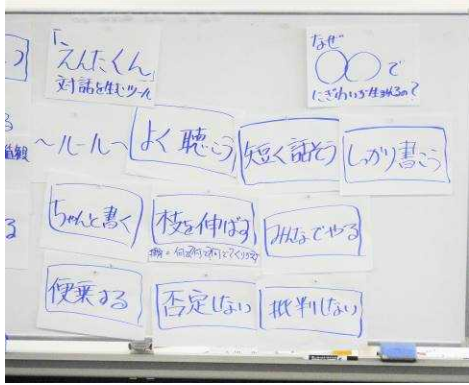 「えんたくん」
対話を生むツール
なぜ
〇〇で
にぎわいが生まれるの?
〜ルール〜
よく聴こう
短く話そう
しっかり書こう
ちゃんと書く
枝を伸ばす
みんなでやる
便乗する
否定しない
批判しない